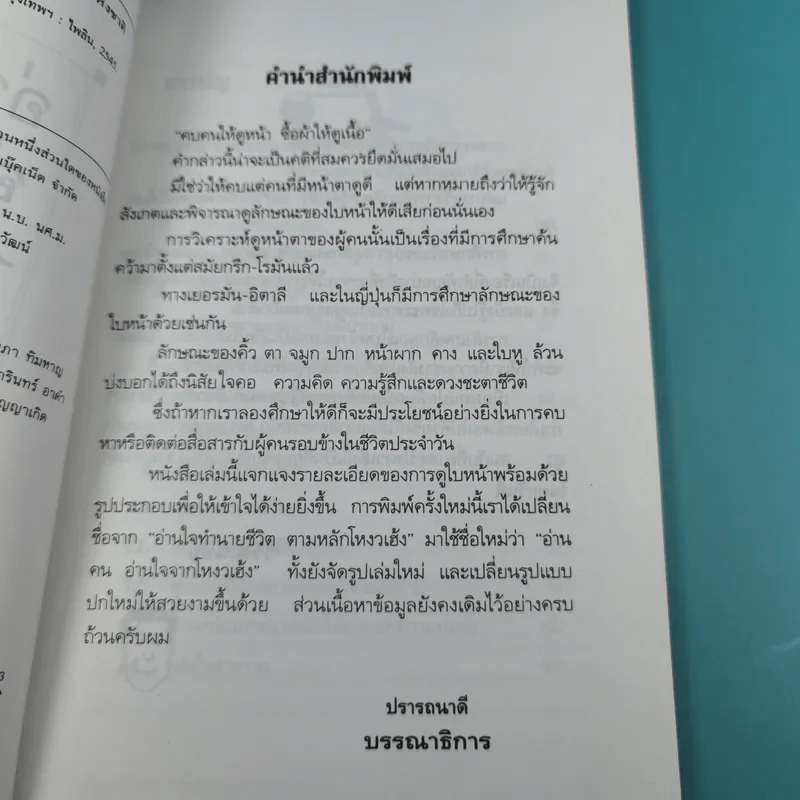 รุงเทพฯ : ไพลิน, 2545.
น.บ. นศ.ม.
วัฒน์
คำนำสำนักพิมพ์
"คบคนให้ดูหน้า ซื้อผ้าให้ดูเนื้อ"
คำกล่าวนี้น่าจะเป็นคติที่สมควรยึดมั่นเสมอไป
มิใช่ว่าให้คบแต่คนที่มีหน้าตาดูดี แต่หากหมายถึงว่าให้รู้จัก
สังเกตและพิจารณาดูลักษณะของใบหน้าให้ดีเสียก่อนนั่นเอง
การวิเคราะห์ดูหน้าตาของผู้คนนั้นเป็นเรื่องที่มีการศึกษาค้น
คว้ามาตั้งแต่สมัยกรีก-โรมันแล้ว
ทางเยอรมัน-อิตาลี และในญี่ปุ่นก็มีการศึกษาลักษณะของ
ใบหน้าด้วยเช่นกัน
ลักษณะของคิ้ว ตา จมูก ปาก หน้าผาก คาง และใบหู ล้วน
บ่งบอกได้ถึงนิสัยใจคอ ความคิด ความรู้สึกและดวงชะตาชีวิต
ซึ่งถ้าหากเราลองศึกษาให้ดีก็จะมีประโยชน์อย่างยิ่งในการคบ
หาหรือติดต่อสื่อสารกับผู้คนรอบข้างในชีวิตประจำวัน
หนังสือเล่มนี้แจกแจงรายละเอียดของการดูใบหน้าพร้อมด้วย
รูปประกอบเพื่อให้เข้าใจได้ง่ายยิ่งขึ้น การพิมพ์ครั้งใหม่นี้เราได้เปลี่ยน
ชื่อจาก "อ่านใจทำนายชีวิต ตามหลักโหงวเฮ้ง" มาใช้ชื่อใหม่ว่า "อ่าน
คน อ่านใจจากโหงวเฮ้ง" ทั้งยังจัดรูปเล่มใหม่ และเปลี่ยนรูปแบบ
ปกใหม่ให้สวยงามขึ้นด้วย ส่วนเนื้อหาข้อมูลยังคงเดิมไว้อย่างครบ
ถ้วนครับผม
ปรารถนาดี
บรรณาธิการ